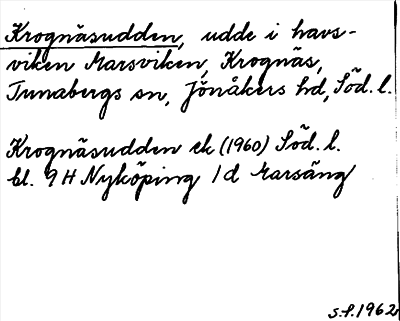 Krognäsudden, udde i havs-
viken Marsviken, Krognäs,
Tunabergs sn, Jönåkers hd, Söd. l.
Krognäsudden ek (1960) Söd. l.
bl. 9 H Nyköping 1 d Marsäng
S.P. 1962